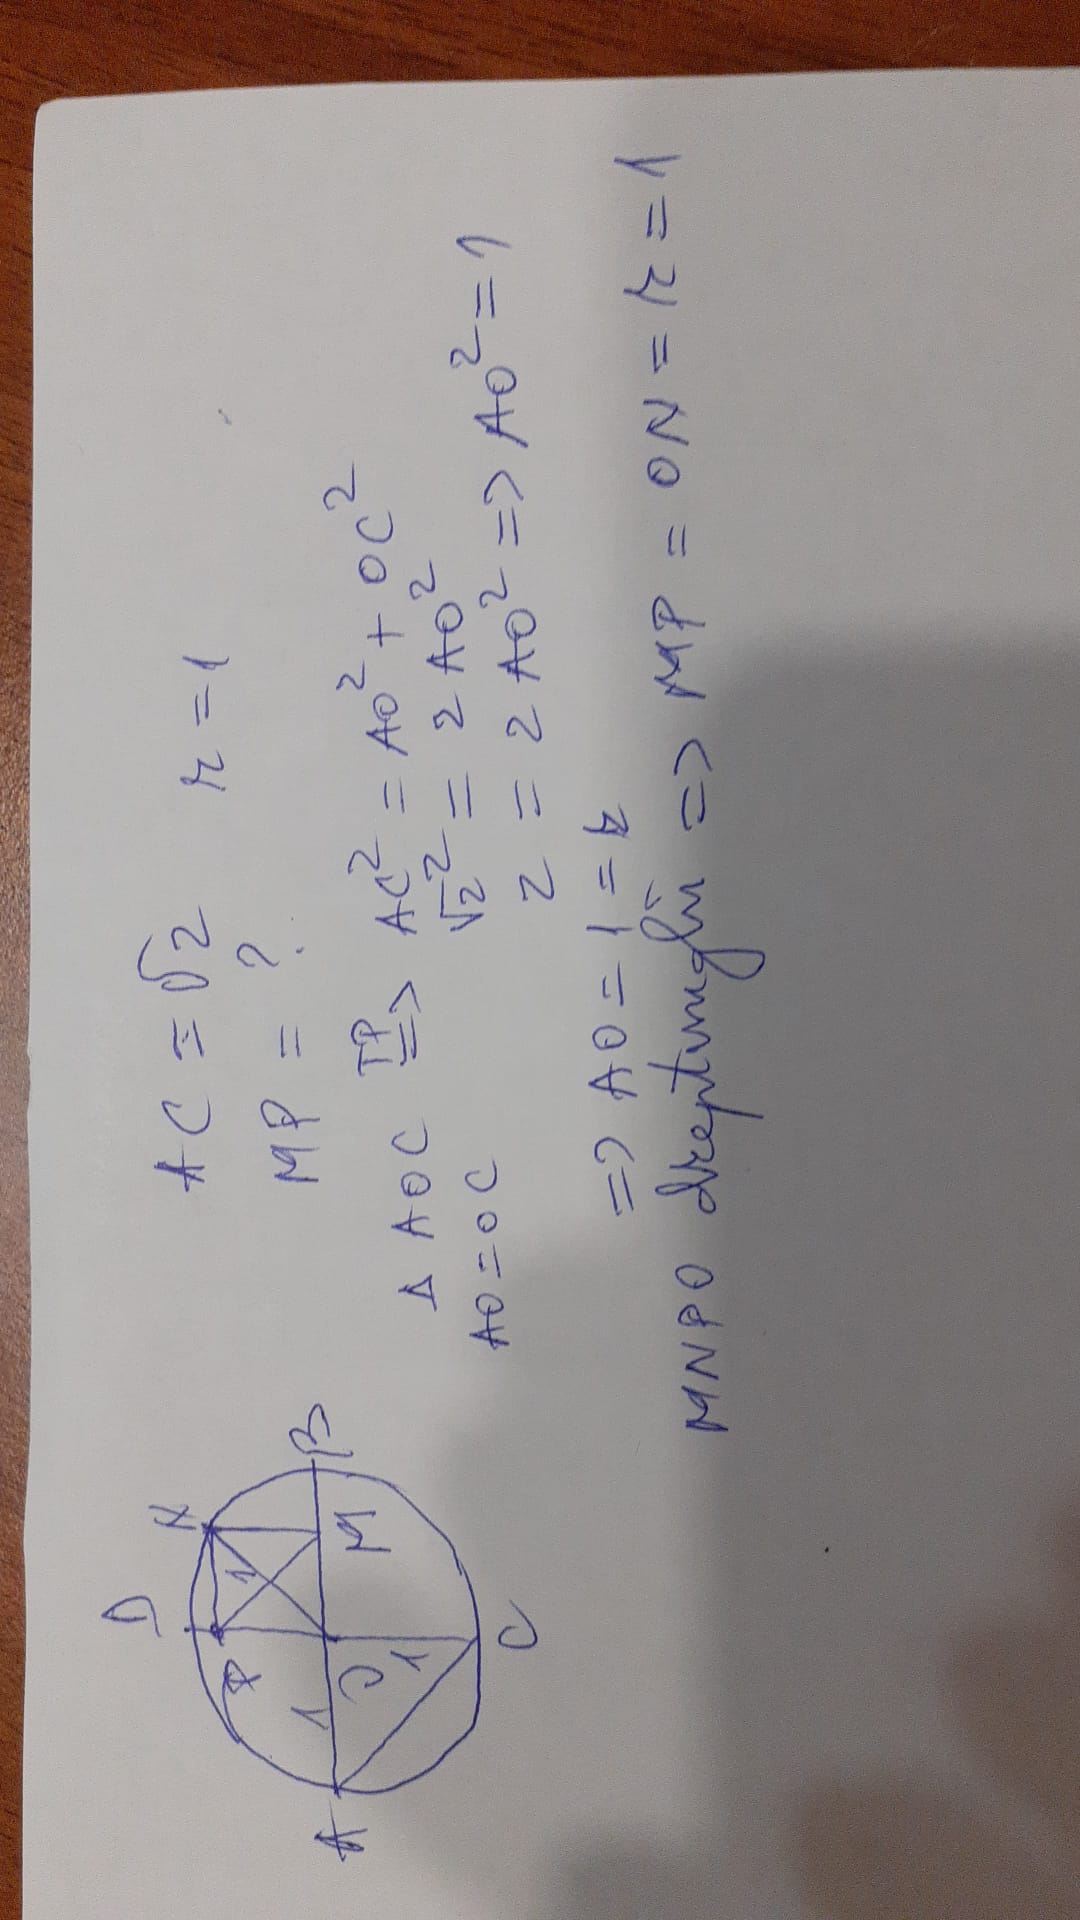 D
N
P 1
A 1 B
O M
1
C
AC = √2 r = 1
MP = ?
Δ AOC TP => AC² = AO² + OC²
AO = OC √2² = 2 AO²
2 = 2 AO² => AO² = 1
=> AO = 1 = r
MNPO dreptunghi => MP = ON = r = 1